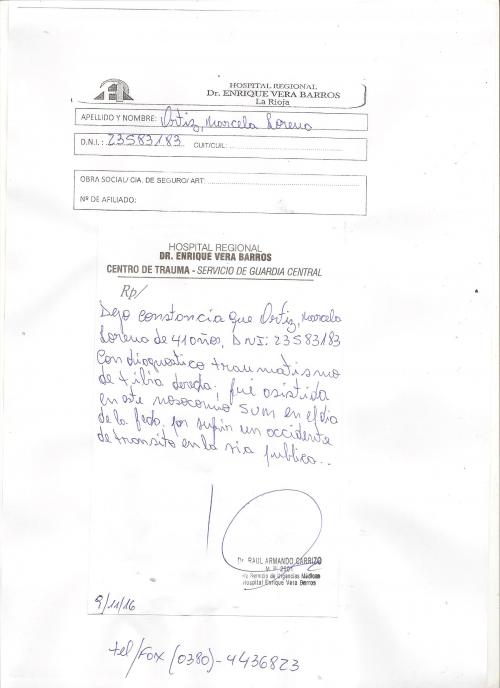 HOSPITAL REGIONAL
Dr. ENRIQUE VERA BARROS
La Rioja
APELLIDO Y NOMBRE: Ortiz, Marcela Lorena
D.N.I.: 23583183 CUIT/CUIL:
OBRA SOCIAL/ CIA. DE SEGURO/ ART:
Nº DE AFILIADO:
HOSPITAL REGIONAL
DR. ENRIQUE VERA BARROS
CENTRO DE TRAUMA - SERVICIO DE GUARDIA CENTRAL
Rp/
Dejo constancia que Ortiz, Marcela
Lorena de 41 años, DNI: 23583183
Con diagnostico traumatismo
de tibia derecha; fué asistida
en este nosocomio SUM en el día
de la fecha, por sufrir un accidente
de transito en la via publica..
Dr. RAUL ARMANDO CARRIZO
M.P. 2501
Servicio de Urgencias Médicas
Hospital Enrique Vera Barros
9/11/16
tel/Fax (0380)-4436823